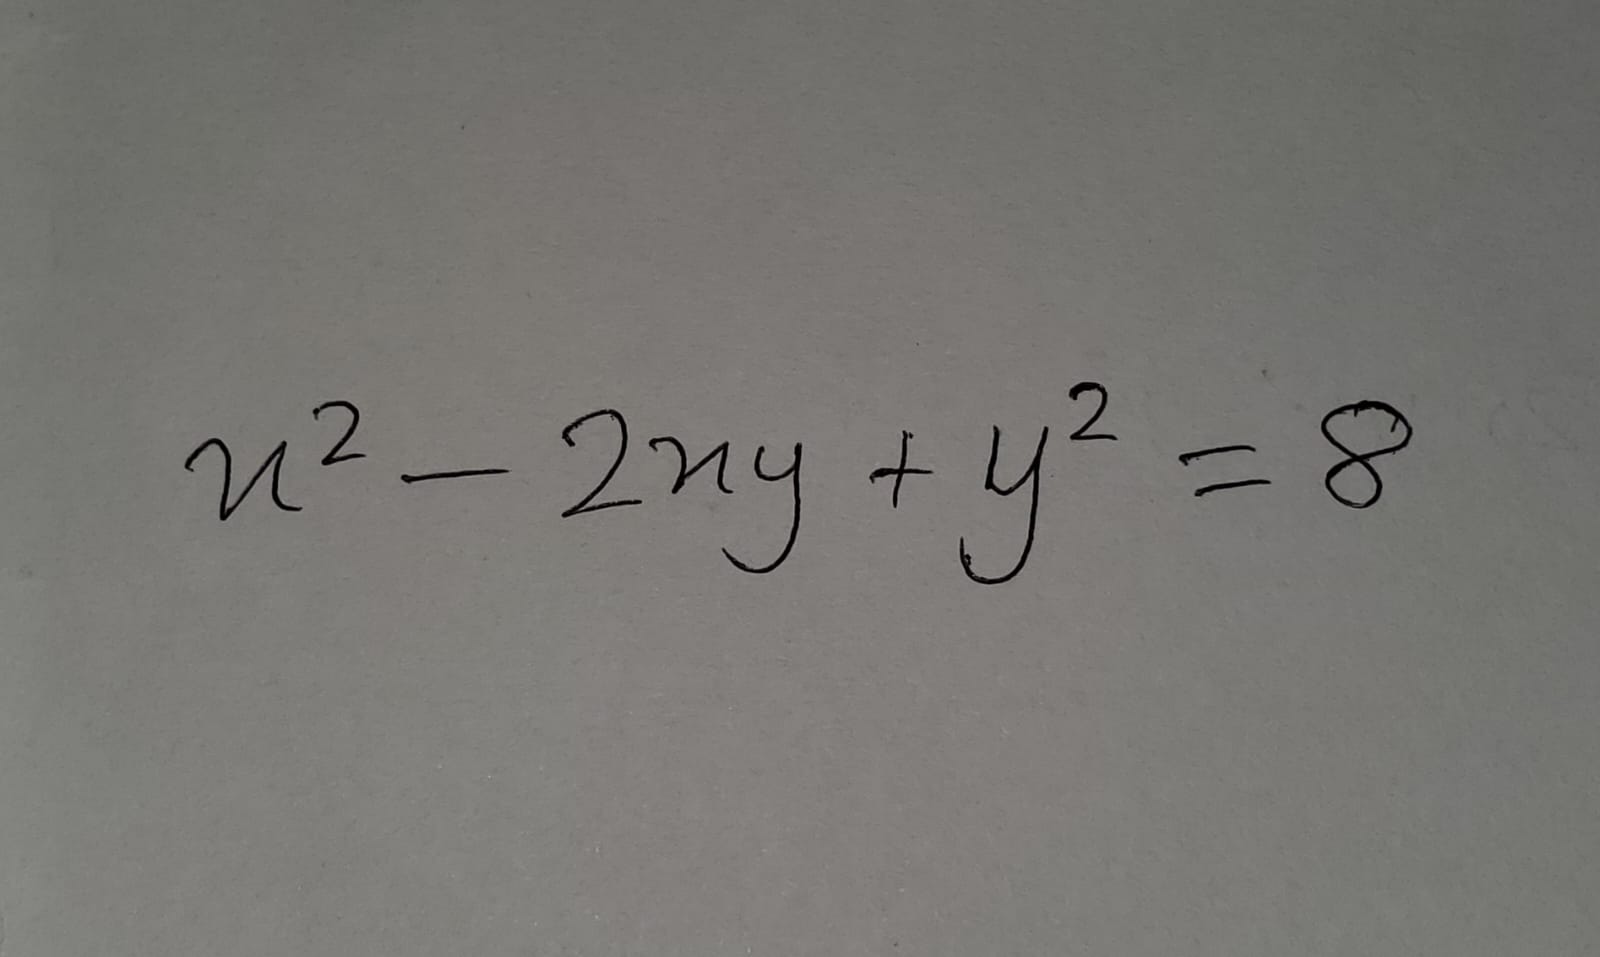 x² - 2xy + y² = 8